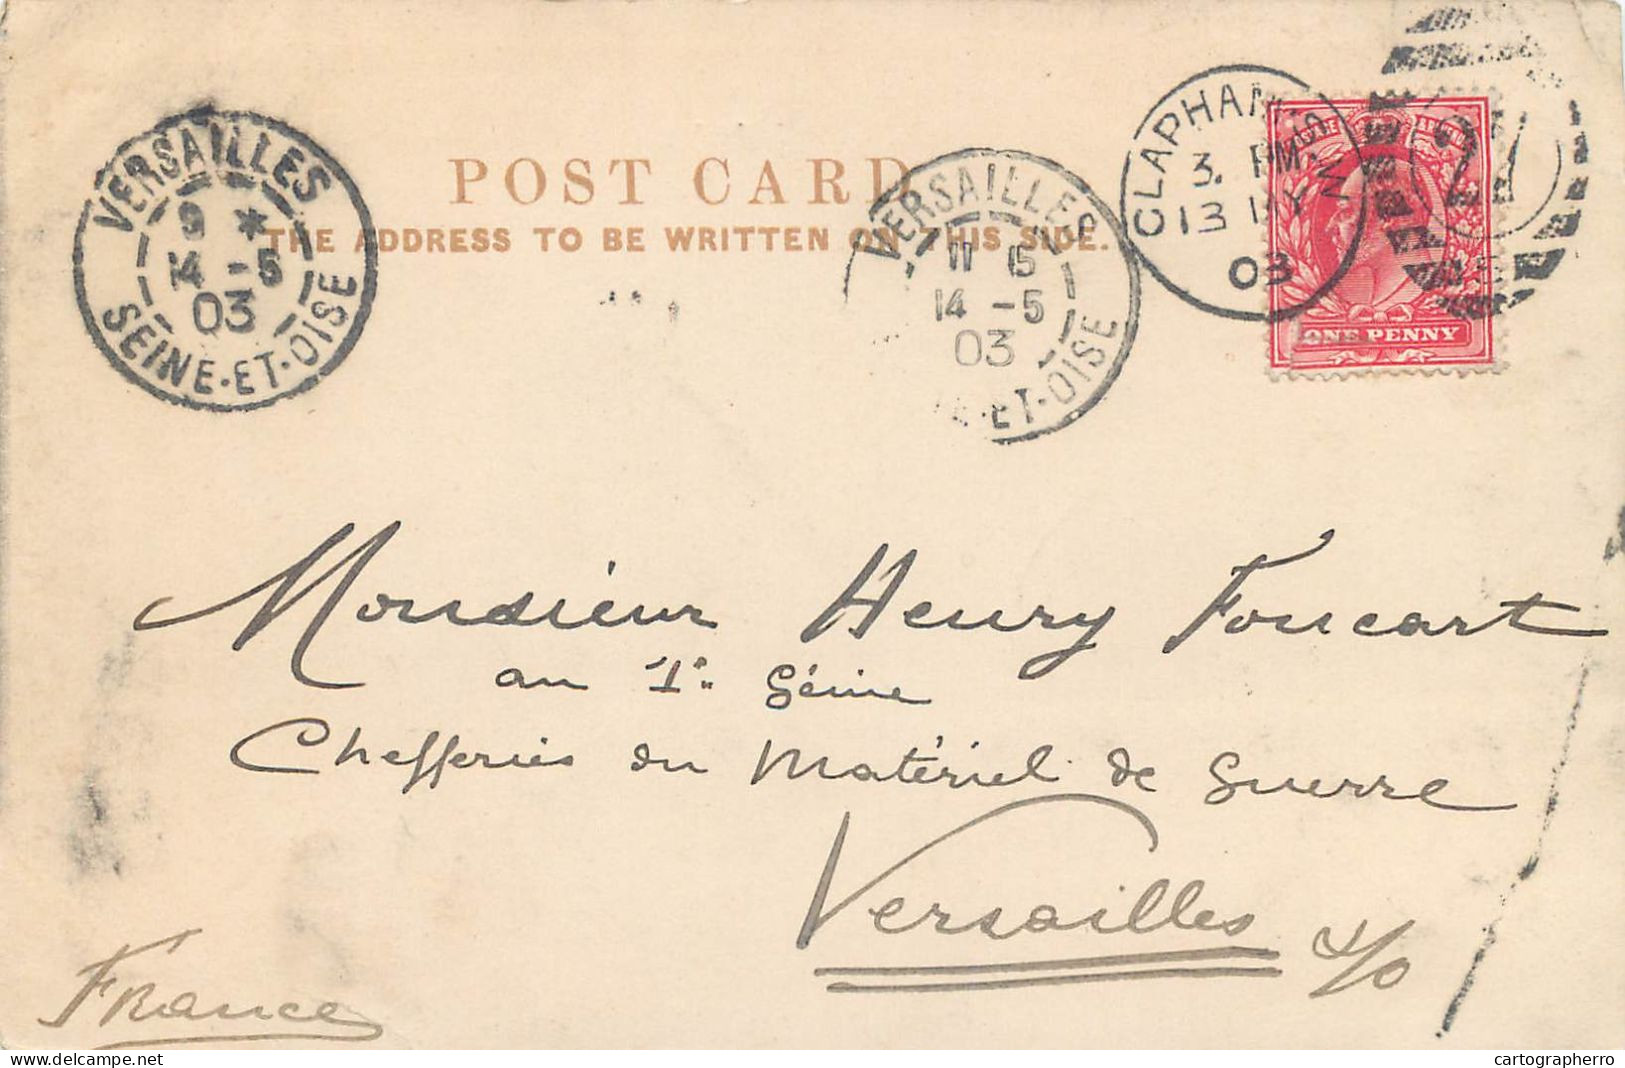 POST CARD
THE ADDRESS TO BE WRITTEN ON THIS SIDE.
VERSAILLES
9 *
14 -5
03
SEINE-ET-OISE
VERSAILLES
11 15
14 -5
03
E-ET-OISE
CLAPHAM
3. PM
13 MY
03
ONE PENNY
Monsieur Henry Foucart
au 1er Génie
Chefferies du Matériel de Guerre
Versailles
S/O
France
delcampe.net
cartographerro